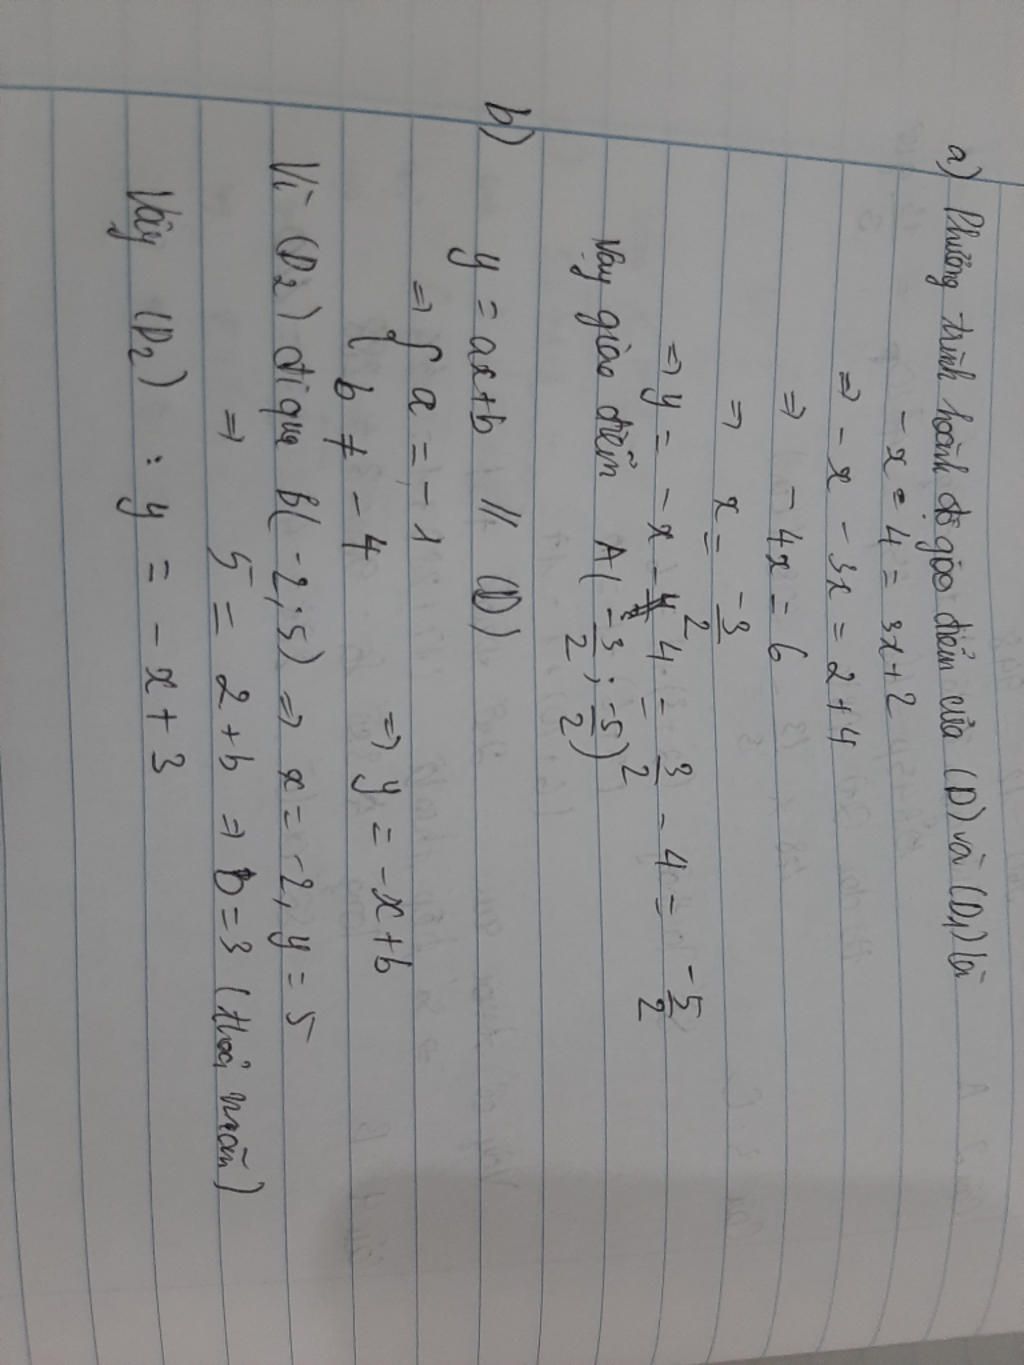 a) Phương trình hoành độ giao điểm của (D) và (D1) là
- x - 4 = 3x + 2
=> - x - 3x = 2 + 4
=> - 4x = 6
=> x = -3/2
=> y = - x - 4 = 3/2 - 4 = -5/2
Vậy giao điểm A( -3/2 ; -5/2 )
b)
y = ax + b // (D)
=> { a = - 1
{ b ≠ - 4 => y = - x + b
Vì (D2) đi qua B( - 2 ; 5 ) => x = - 2, y = 5
=> 5 = 2 + b => b = 3 (thỏa mãn)
Vậy (D2) : y = - x + 3